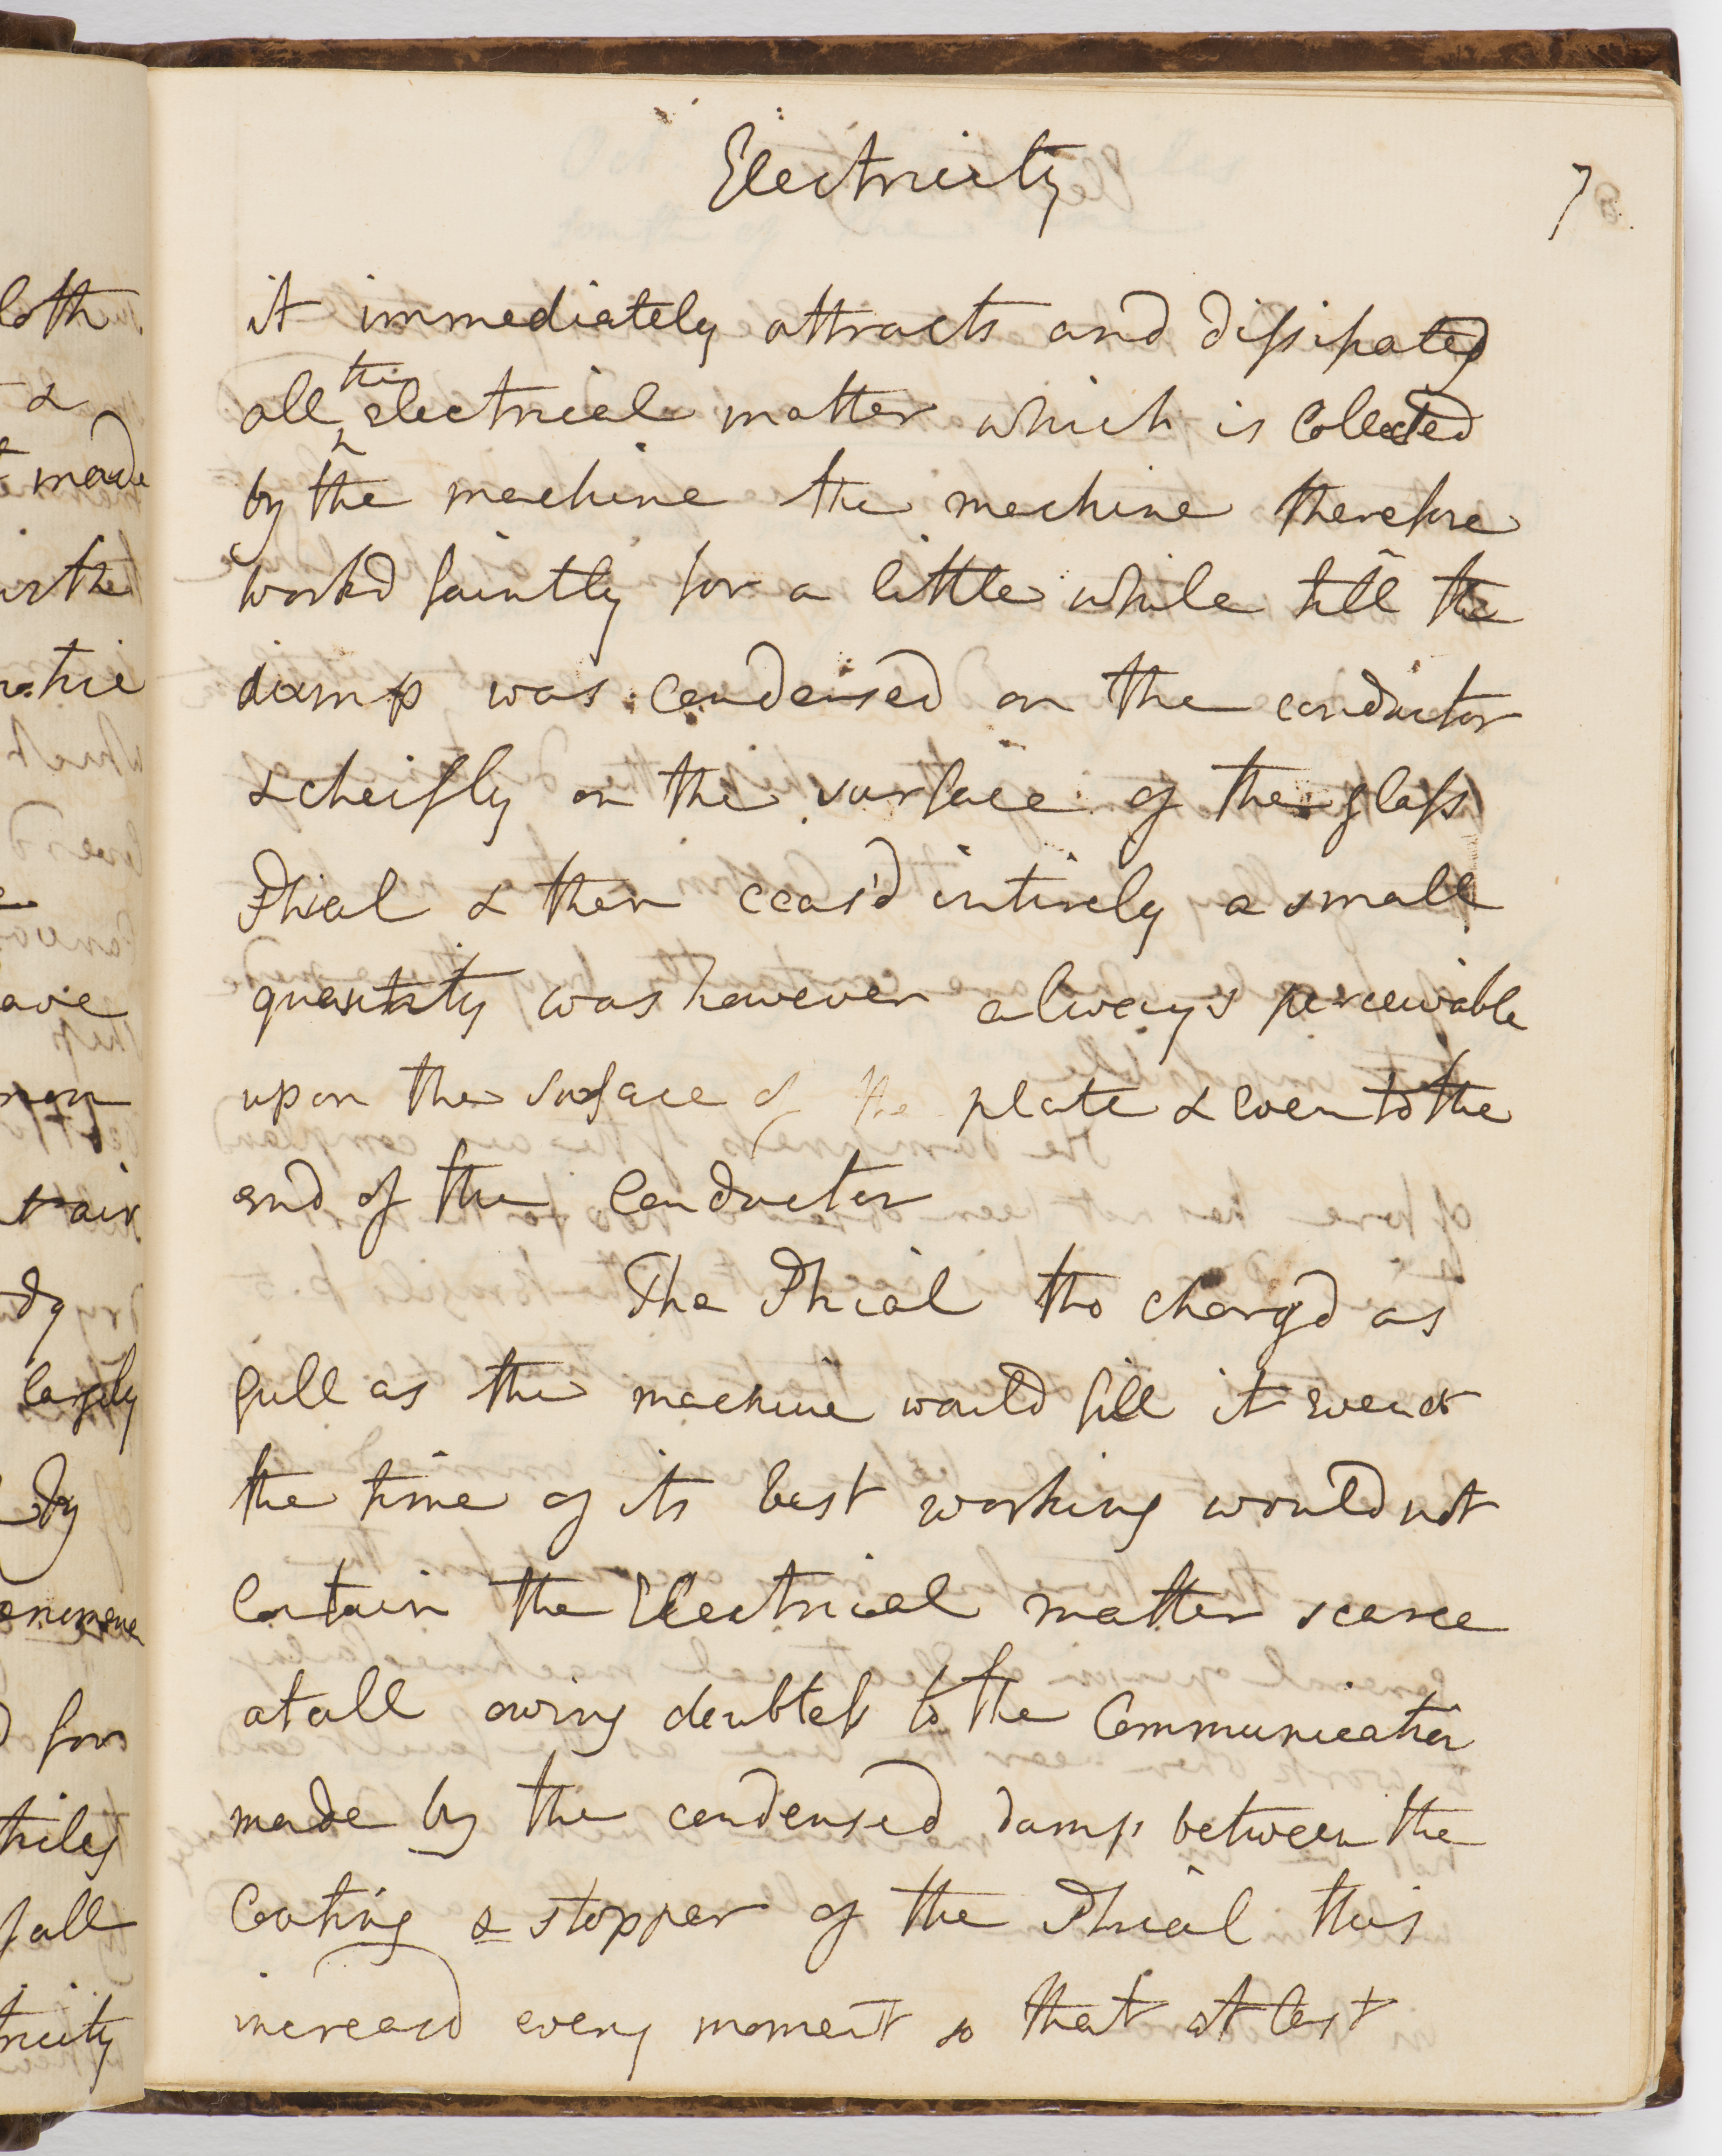 Electricity
7
it immediately attracts and dissipated
all the electrical matter which is Collected
by the machine the machine therefore
workd faintly for a little while till the
damp was condensed on the conductor
& cheifly on the surface of the glass
Phial & then ceas'd intirely a small
quantity was however always perceivable
upon the surface of the plate & even to the
end of the Conductor
The Phial tho chargd as
full as the machine would fill it even at
the time of its best working would not
Contain the Electrical matter scarce
at all owing doubtless to the Communication
made by the condensed damp between the
Coating & stopper of the Phial this
increasd every moment so that at last